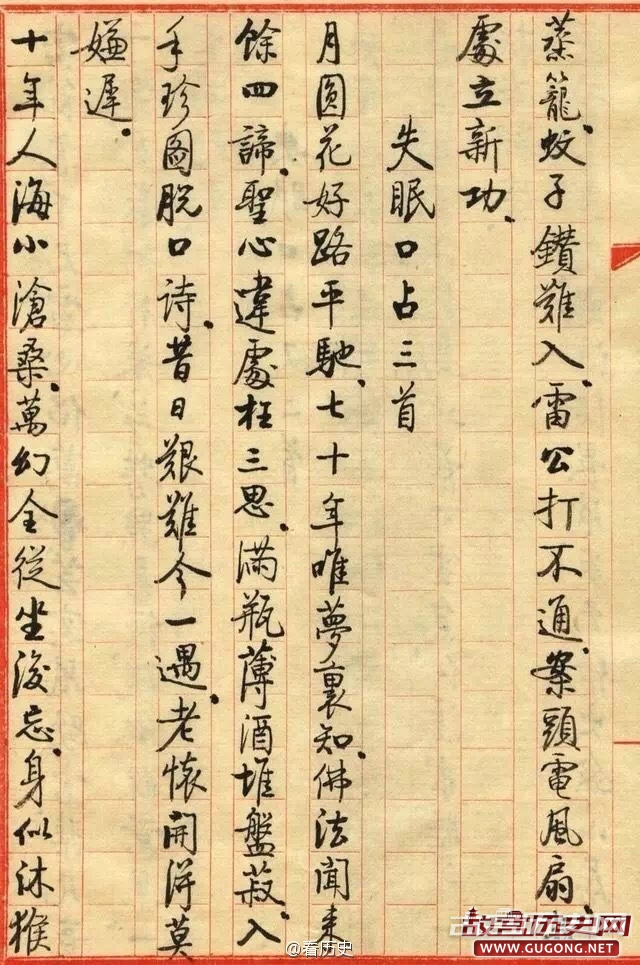 蒸籠、蚊子鑽難入、雷公打不通、案頭電風扇、
處立新功、
失眠口占三首
月圓花好路平馳、七十年唯夢裏知、佛法聞來
餘四諦、聖心違處枉三思、滿瓶薄酒堆盤菽、入
手珍圖脫口诗、昔日艱難今一遇、老懷開得莫
嫌遲、
十年人海小滄桑、萬幻全從坐後忘、身似沐猴
@看历史
故宫历史网
WWW.GUGONG.NET